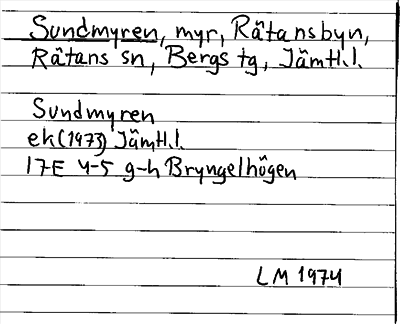 Sundmyren, myr, Rätansbyn,
Rätans sn, Bergs tg, Jämtl.l.
Sundmyren
ek(1973) Jämtl.l.
17E 4-5 g-h Bryngelhögen
LM 1974